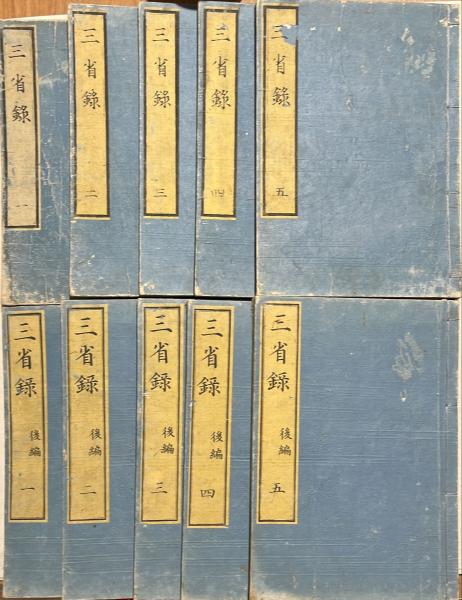 三省錄 一
三省錄 二
三省錄 三
三省錄 四
三省錄 五
三省錄 後編 一
三省錄 後編 二
三省錄 後編 三
三省錄 後編 四
三省錄 後編 五